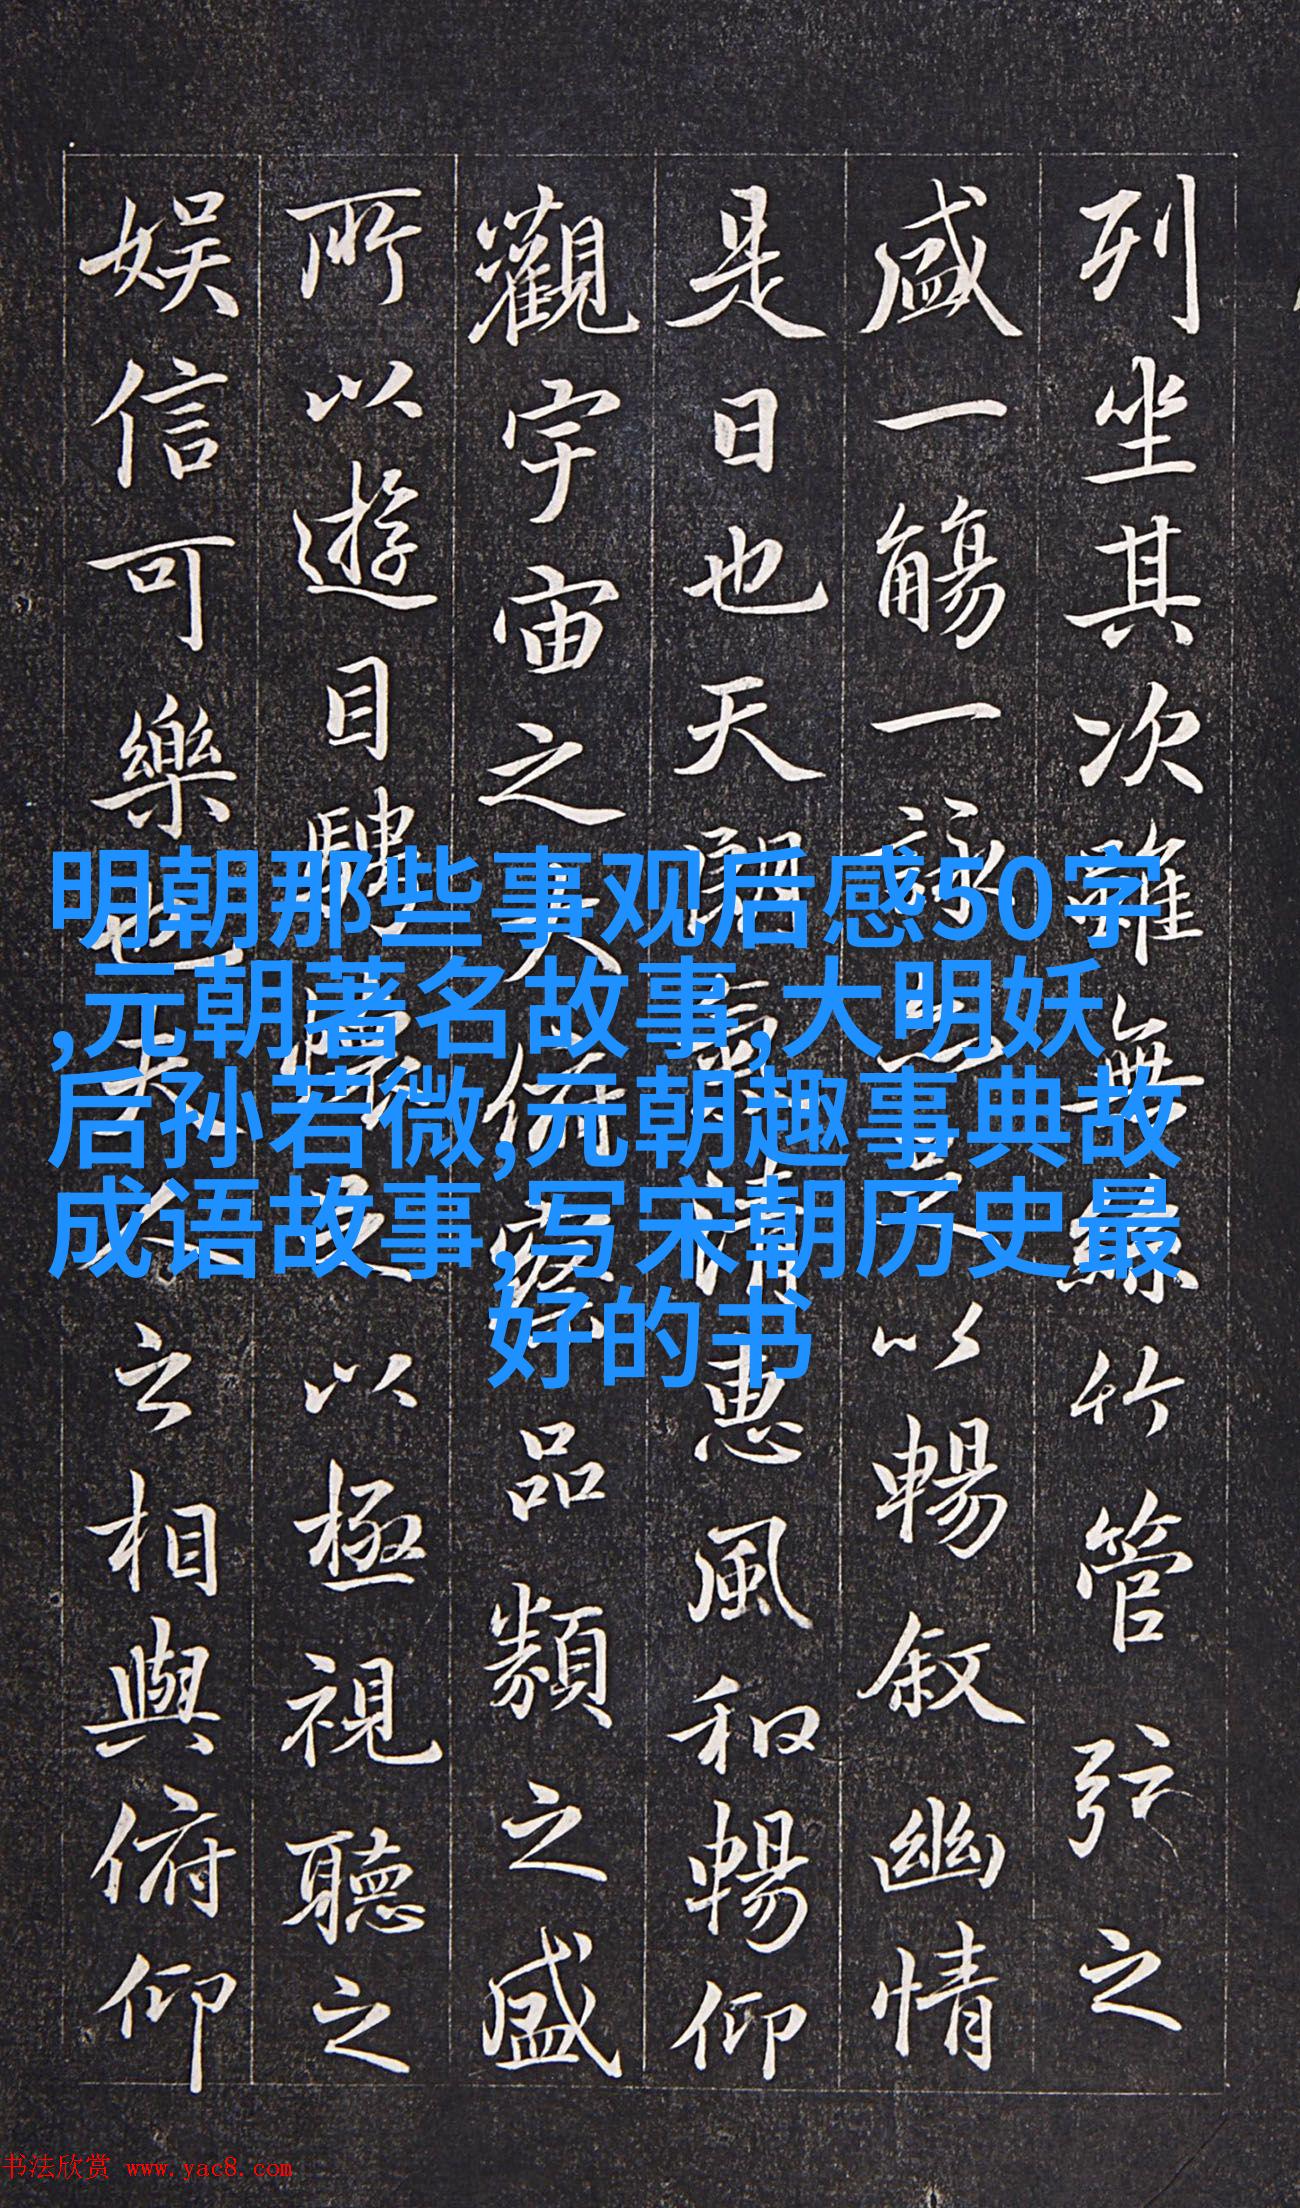 列坐其次雖無絲竹管弦之
盛一觴一詠亦足以暢敘幽情
是日也天朗氣清惠風和暢仰
觀宇宙之大俯察品類之盛
所以遊目騁懷足以極視聽之
娛信可樂也夫人之相與俯仰
明朝那些事观后感50字
,元朝著名故事,大明妖
后孙若微,元朝趣事典故
成语故事,写宋朝历史最
好的书
书法欣赏 www.yac8.com